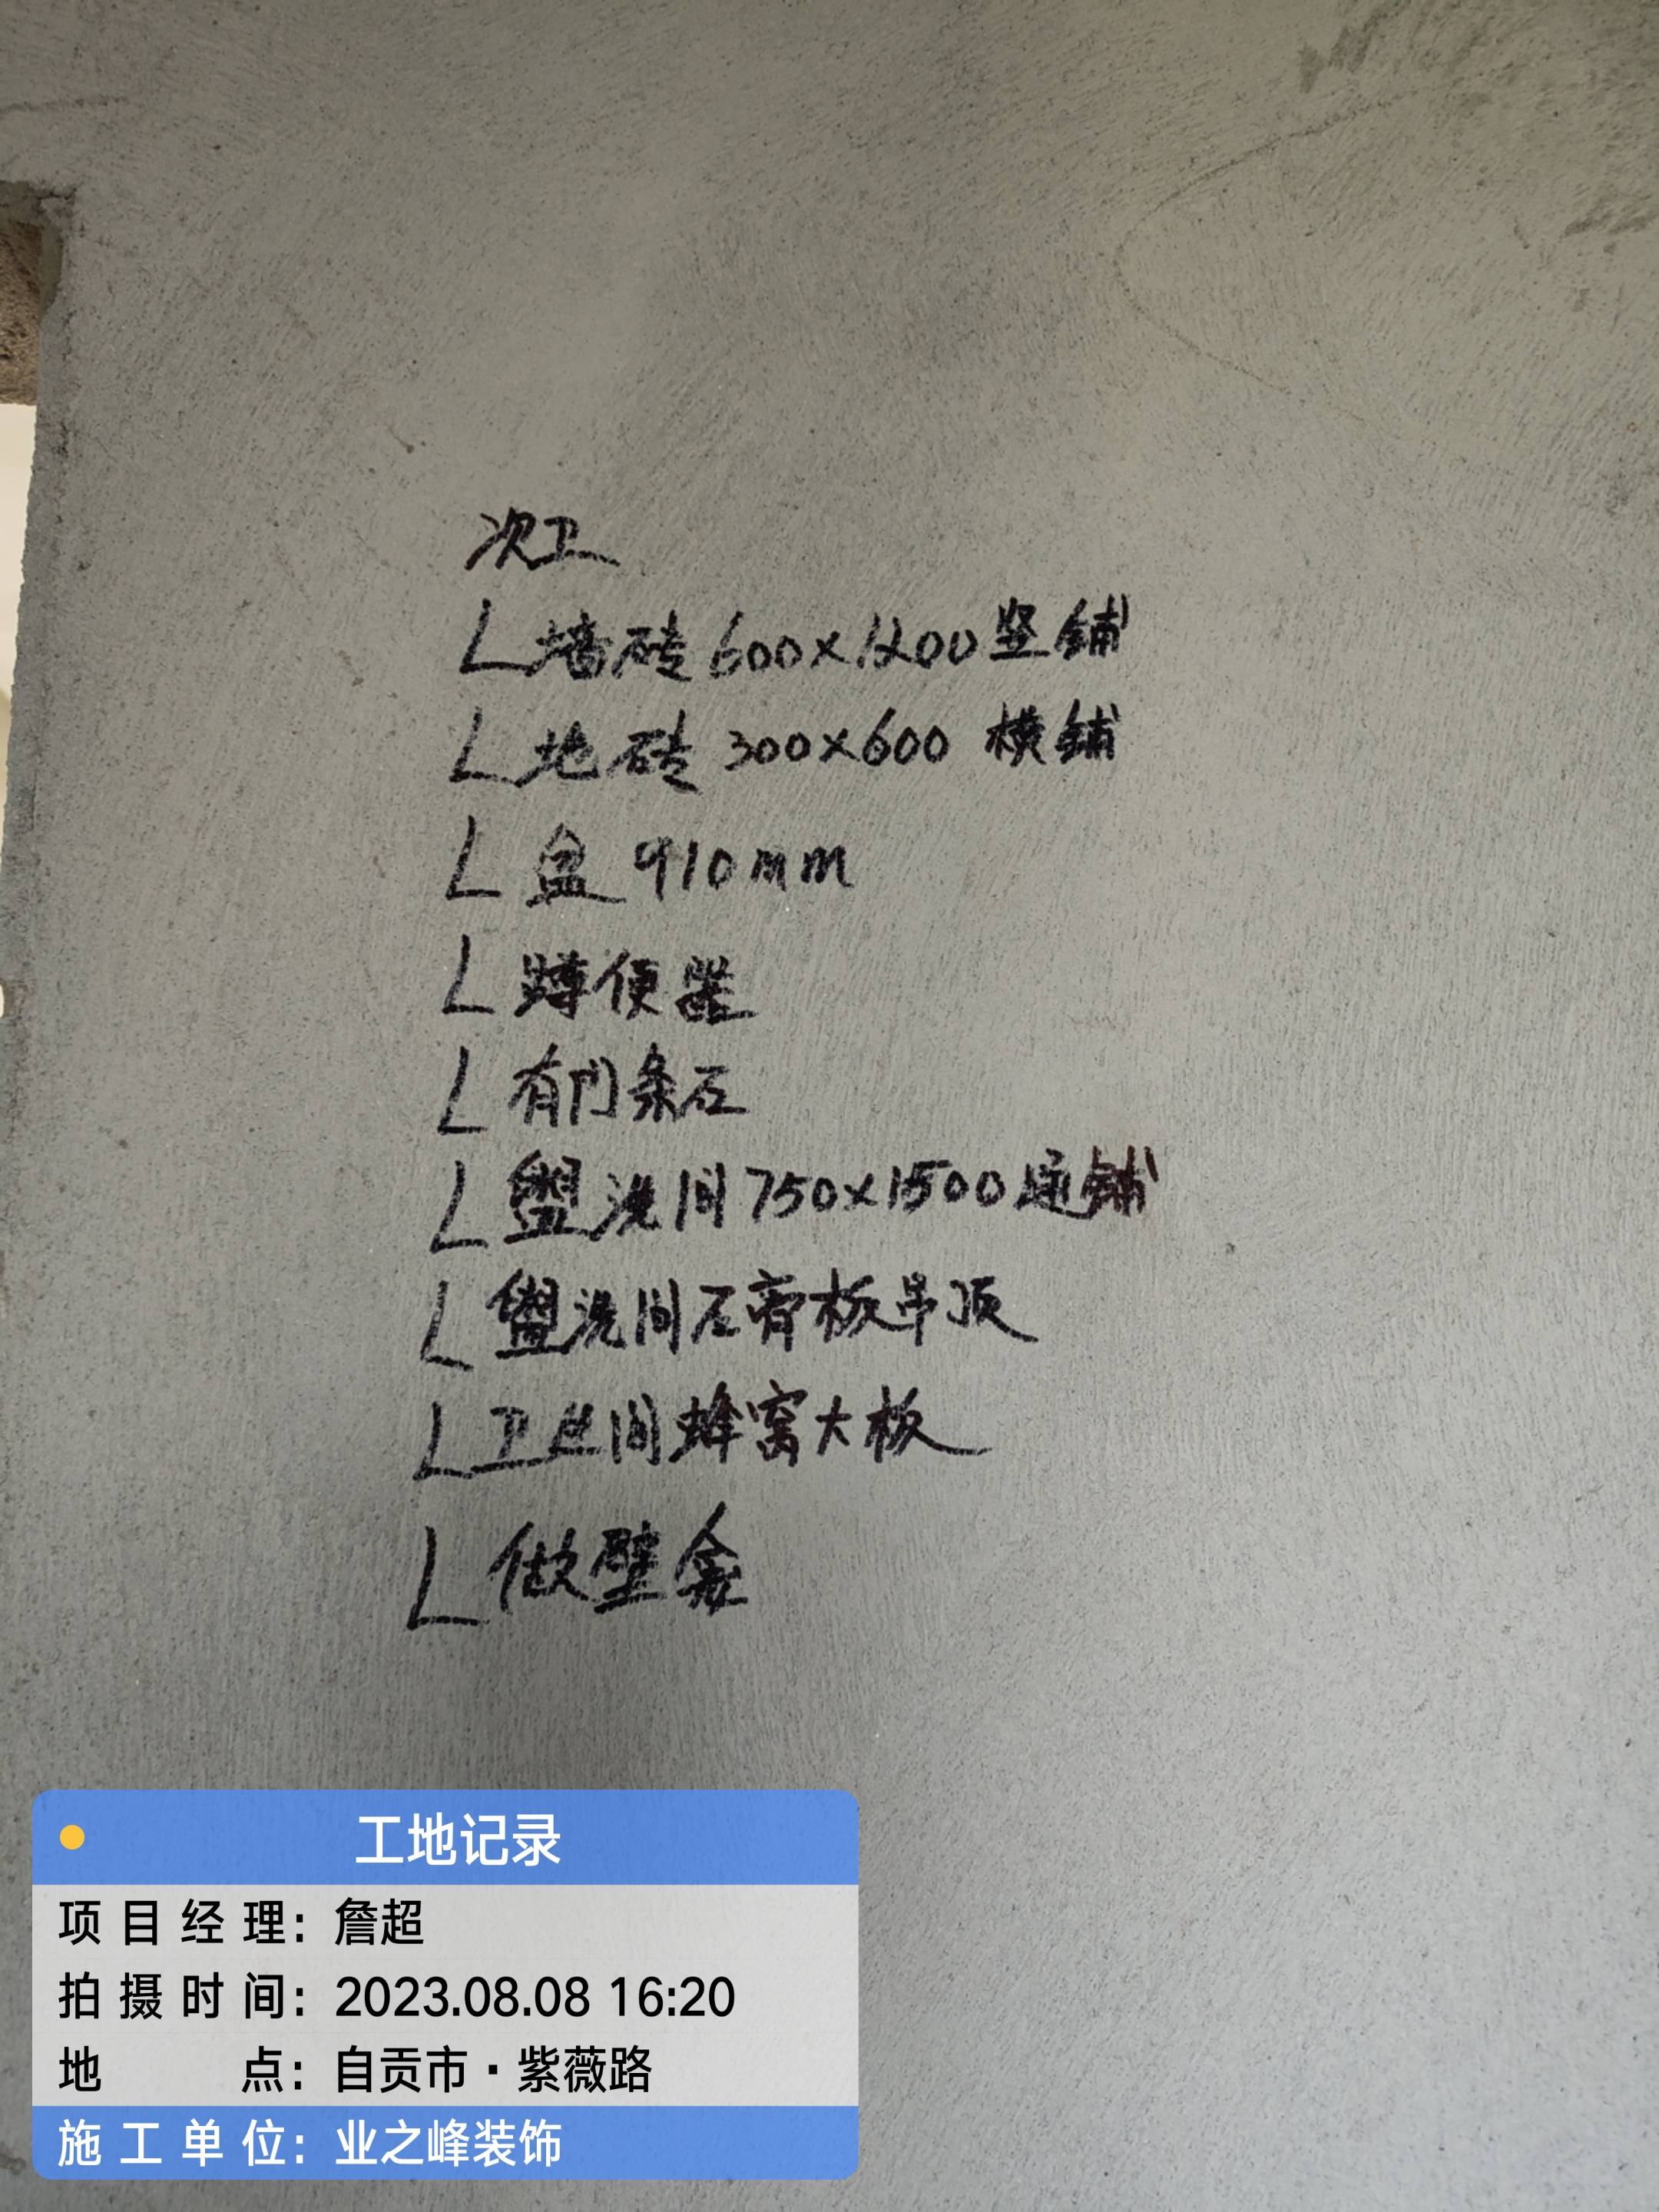 次卫
L墙砖600×1200竖铺
L地砖 300×600 横铺
L 盆 910mm
L 蹲便器
L 有门条石
L 盥洗间750×1500通铺
L 盥洗间石膏板吊顶
L卫生间蜂窝大板
L 做壁龛
工地记录
项目经理：詹超
拍摄时间：2023.08.08 16:20
地点：自贡市·紫薇路
施工单位：业之峰装饰